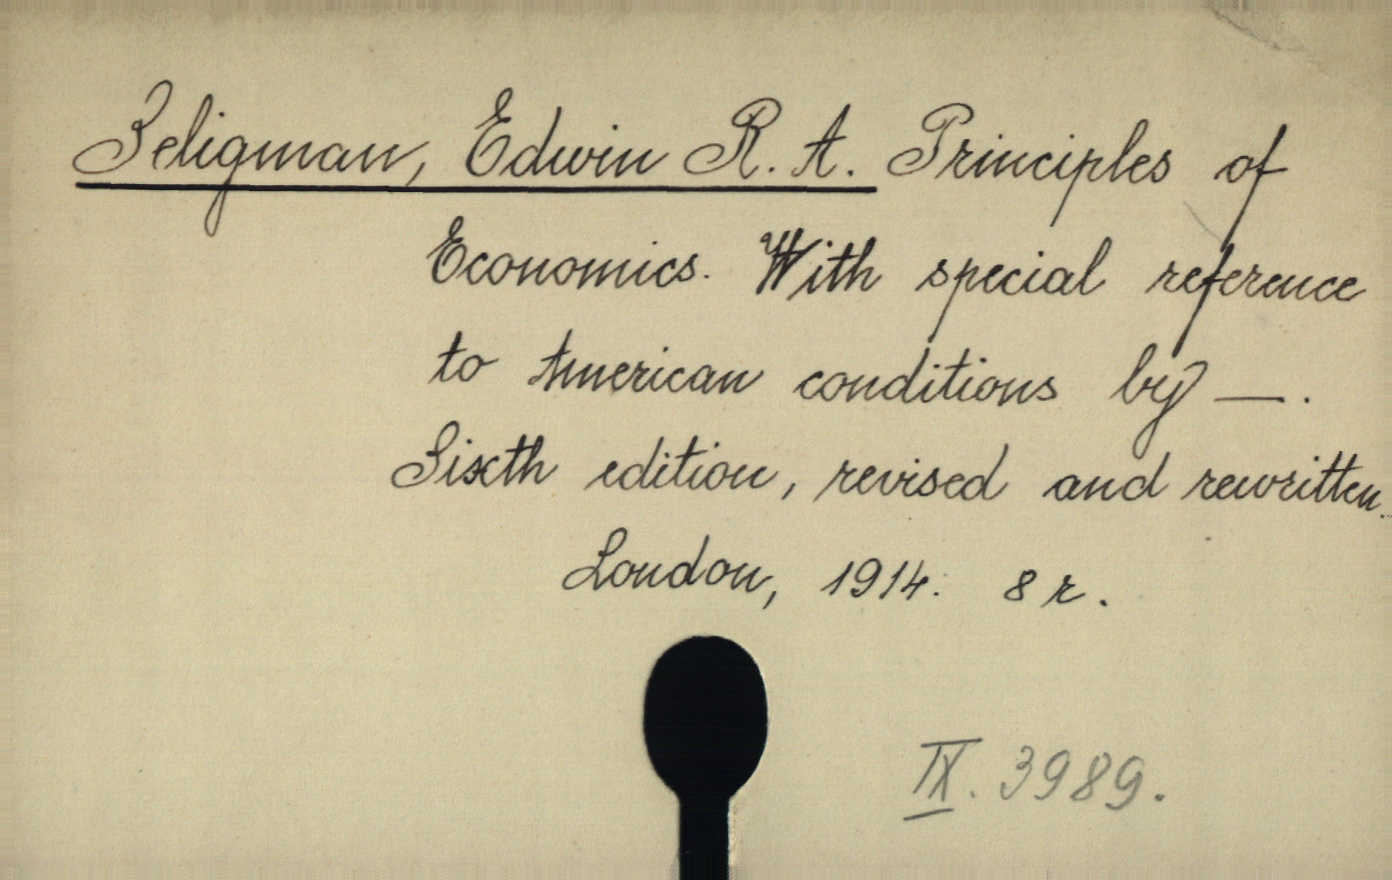 Seligman, Edwin R. A. Principles of
Economics. With special reference
to American conditions by —.
Sixth edition, revised and rewritten.
London, 1914. 8 r.
IX. 3989.